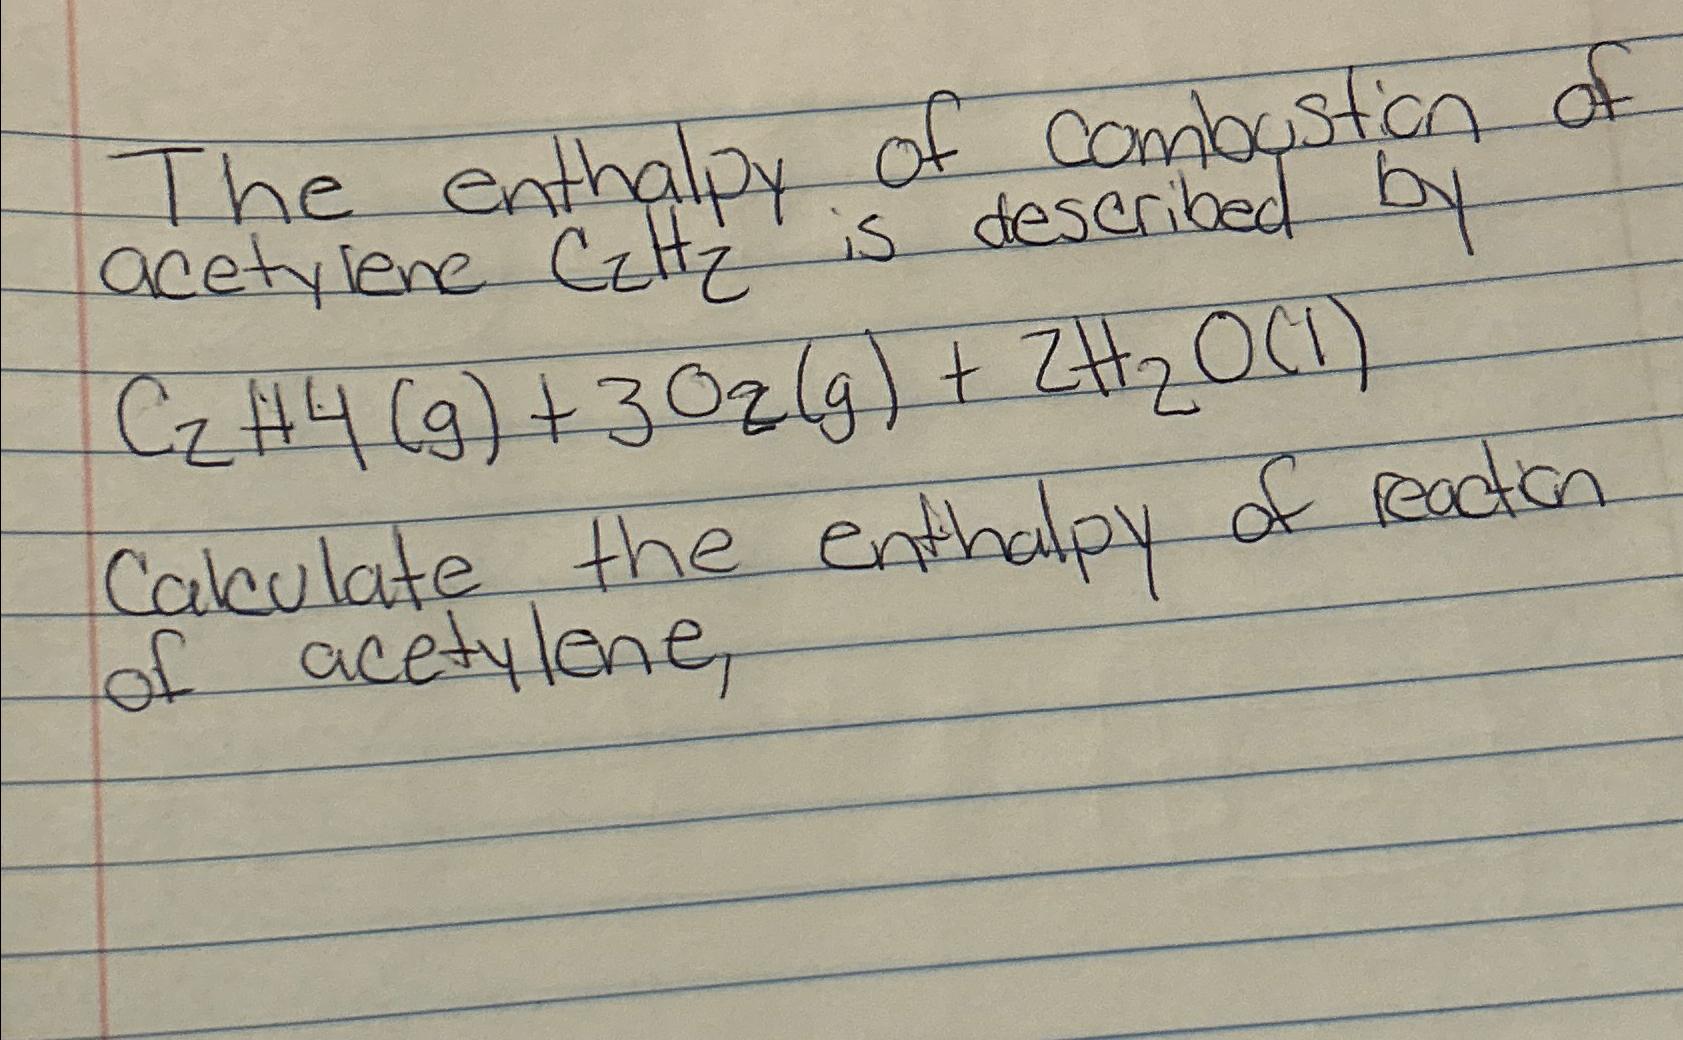 The enthalpy of combustion of
acetylene C₂H₂ is described by
C₂H4(g) + 3O₂(g) + 2H₂O(l)
Calculate the enthalpy of reaction
of acetylene,